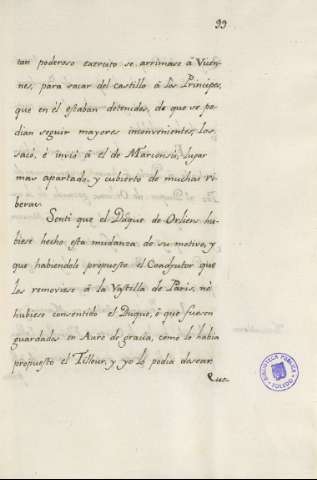 99
tan poderoso exercito se arrimase à Vicen-
nes, para sacar del castillo à los Principes,
que en èl estaban detenidos, de que se po-
dian seguir mayores inconvenientes, los
sacó, è invió à el de Marconsis, lugar
mas apartado, y cubierto de muchas ri-
beras.
Senti que el Duque de Orliens hu-
biese hecho esta mudanza de su motivo, y
que habiendole propuesto el Coadjutor que
los removiese à la Vastilla de Paris, nó
hubiese consentido el Duque, ò que fuesen
guardados en Auro de gracia, como lo había
propuesto el Tilleur, y yo lo podia desear.
Que
BIBLIOTECA PUBLICA
TOLEDO